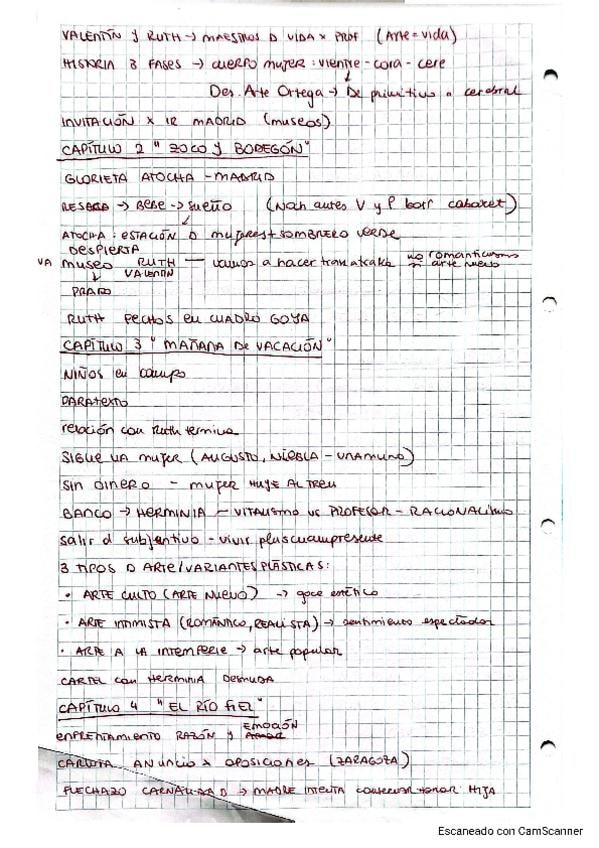 VALENTÍN Y RUTH → MAESTROS D VIDA x PROF (Arte = vida)
HISTORIA 3 FASES → CUERPO MUJER: VIENTRE - CORA - CERE
Des. Arte Ortega → De primitivo a cerebral
INVITACIÓN x IR MADRID (museos)
CAPÍTULO 2 " ZOCO Y BODEGÓN"
GLORIETA ATOCHA - MADRID
RESACA → BEBE → SUEÑO (Noch antes V y P cabaret)
ATOCHA: ESTACIÓN D mujeres + SOMBRERO VERDE
DESPIERTA
VA museo RUTH — vamos a hacer no romanticismo
VALENTÍN si arte nuevo
PRADO
RUTH PECHOS EN CUADRO GOYA
CAPÍTULO 3 " MAÑANA DE VACACIÓN"
NIÑOS en campo
PARATEXTO
relación con Ruth termina
SIGUE UA MUJER (AUGUSTO, NIEBLA - UNAMUNO)
SIN DINERO - MUJER HUYE AL TREN
BANCO → HERMINIA — VITALISMO VS PROFESOR - RACIONALISMO
salir d subjuntivo - vivir pluscuampresente
3 TIPOS D ARTE/VARIANTES PLÁSTICAS:
• ARTE CULTO (ARTE NUEVO) → goce estético
• ARTE INTIMISTA (ROMÁNTICO, REALISTA) → sentimiento espectador
• ARTE A LA INTEMPERIE → arte popular
CARTEL con HERMINIA DESNUDA
CAPÍTULO 4 " EL RÍO FIEL"
EMOCIÓN
ENFRENTAMIENTO RAZÓN Y
CARLOTA ANUNCIO x OPOSICIONES (ZARAGOZA)
FLECHAZO → MADRE INTENTA conservar honor HIJA
Escaneado con CamScanner